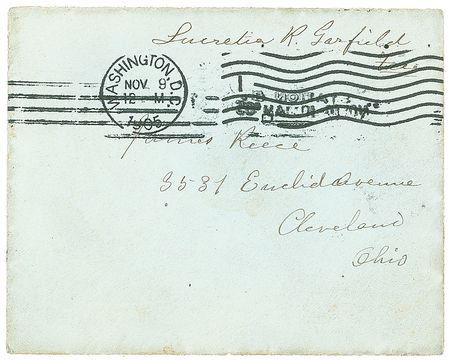 Lucretia R. Garfield
WASHINGTON, D.C.
NOV 9
12 - M.
1905
James Reece
3531 Euclid Avenue
Cleveland
Ohio